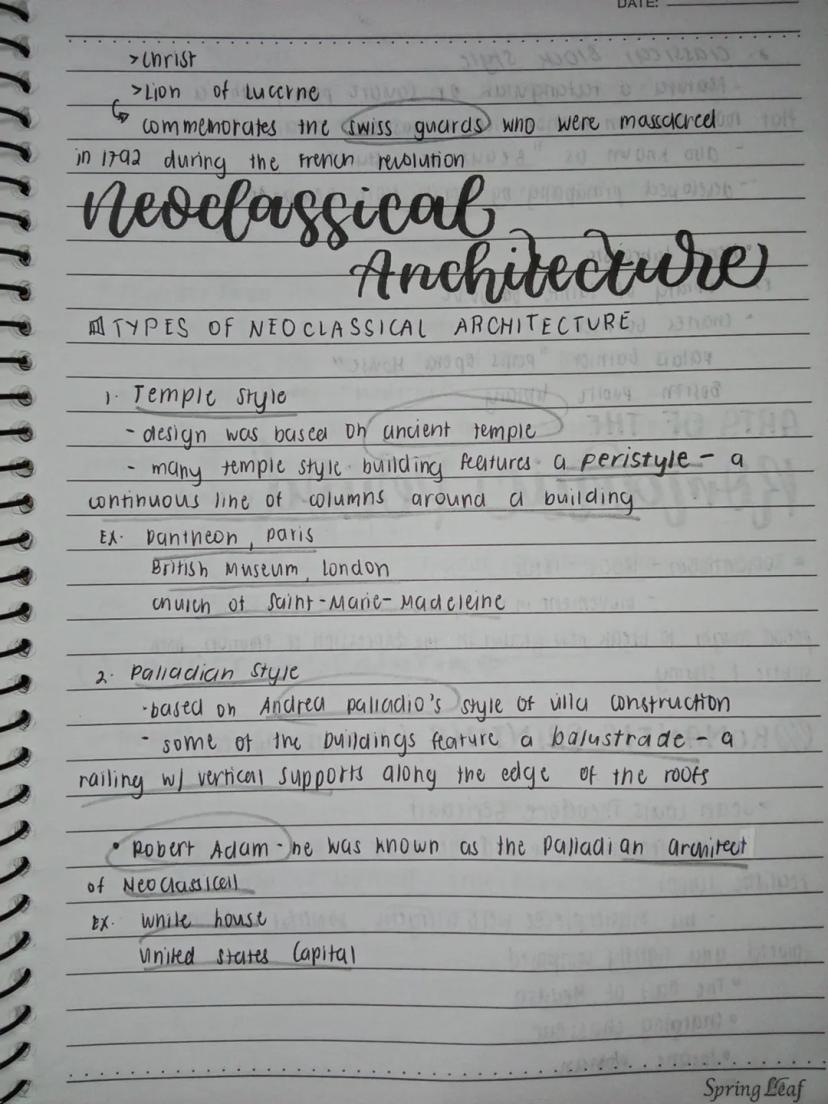 DATE:
> Christ
> Lion of Lucerne
commemorates the swiss guards who were massacred
in 1792 during the French revolution
Neoclassical
Architecture
TYPES OF NEOCLASSICAL ARCHITECTURE
1. Temple style
- design was based on ancient temple
- many temple style building features a peristyle - a
continuous line of columns around a building
EX. Pantheon, paris
British Museum, London
church of Saint-Marie-Madeleine
2. Palladian Style
- based on Andrea palladio's style of villa construction
- some of the buildings feature a balustrade - a
railing w/ vertical supports along the edge of the roofs
• Robert Adam - he was known as the Palladian architect
of Neoclassicell
EX. white house
United States Capital
Spring Leaf